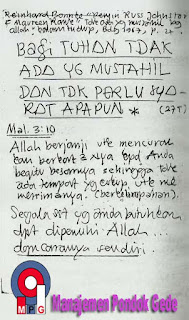 Reinhard Bonnke "Penyiar Russ Johnston
& Maureen Rank" Tdk ada yg mustahil bg
Allah": dalam hidup, Bdg 1997, p. 27.
Bagi TUHAN TDAK
ADA YG MUSTAHIL
DAN TDK PERLU SYA-
RAT APAPUN * (275)
Mal. 3:10
Allah berjanji utk mencurah
kan berkat2 Nya kpd Anda
begitu besarnya sehingga tdk
ada tempat yg cukup utk me
nerimanya. (berkelimpahan).
Segala sst yg anda butuhkan
dpt dipenuhi Allah...
dgn caranya sendiri.
MPG
Manajemen Pondok Gede